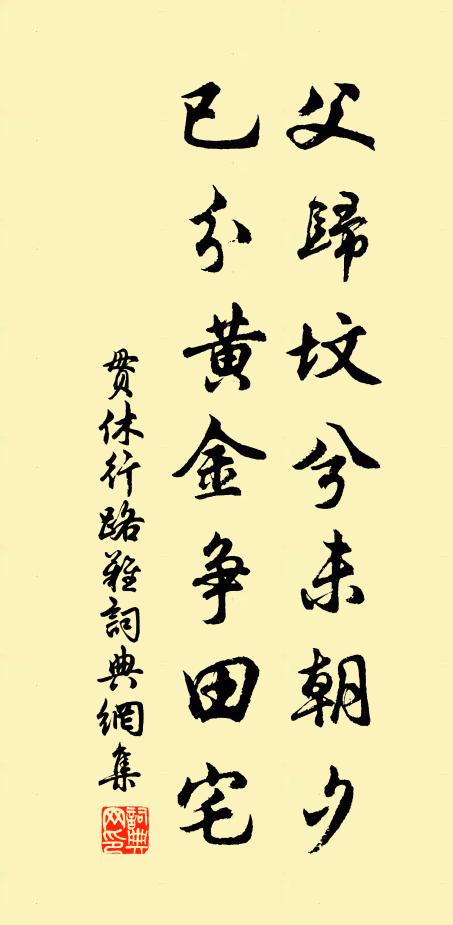 父歸墳兮未朝夕
已分黃金爭田宅
貫休行路難詞典網集
詞典網印